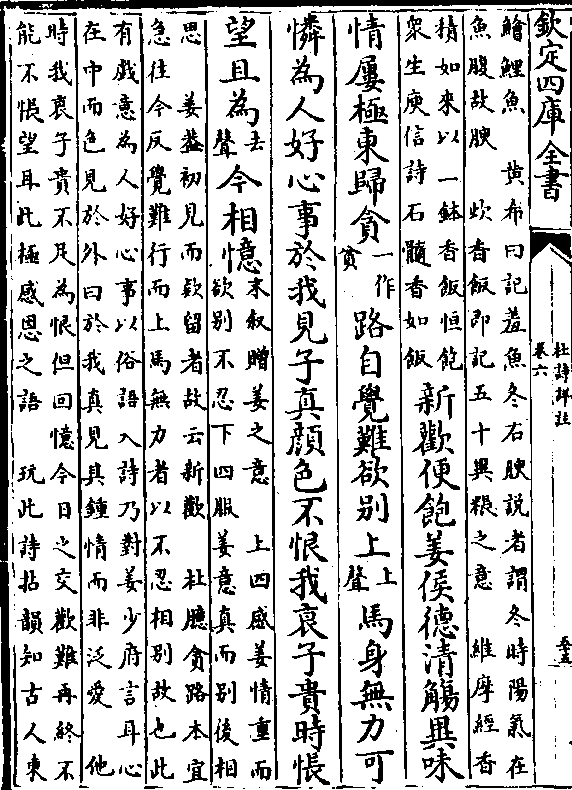 欽定四庫全書
杜詩詳註
卷六
鱠鯉魚　黄希曰記羞魚冬右腴說者謂冬時陽氣在
魚腹故腴　炊香飯即記五十異粻之意　維摩經香
積如來以一鉢香飯恒飽
衆生庾信詩石髓香如飯
新歡便飽姜侯德清觴異味
情屢極東歸貪
一作
貧
路自覺難欲别上
上
聲
馬身無力可
憐為人好心事於我見子真顔色不恨我衰子貴時悵
望且為
去
聲
今相憶
末叙贈姜之意　上四感姜情重而
欲别不忍下四服姜意真而别後相
思　姜蓋初見而欵留者故云新歡　杜臆貪路本宜
急往今反覺難行而上馬無力者以不忍相别故也此
有戲意為人好心事以俗語入詩乃對姜少府言耳心
在中而色見於外曰於我真見其鍾情而非泛愛　他
時我衰子貴不足為恨但回憶今日之交歡難再終不
能不悵望耳此極感恩之語　玩此詩拈韻知古人東